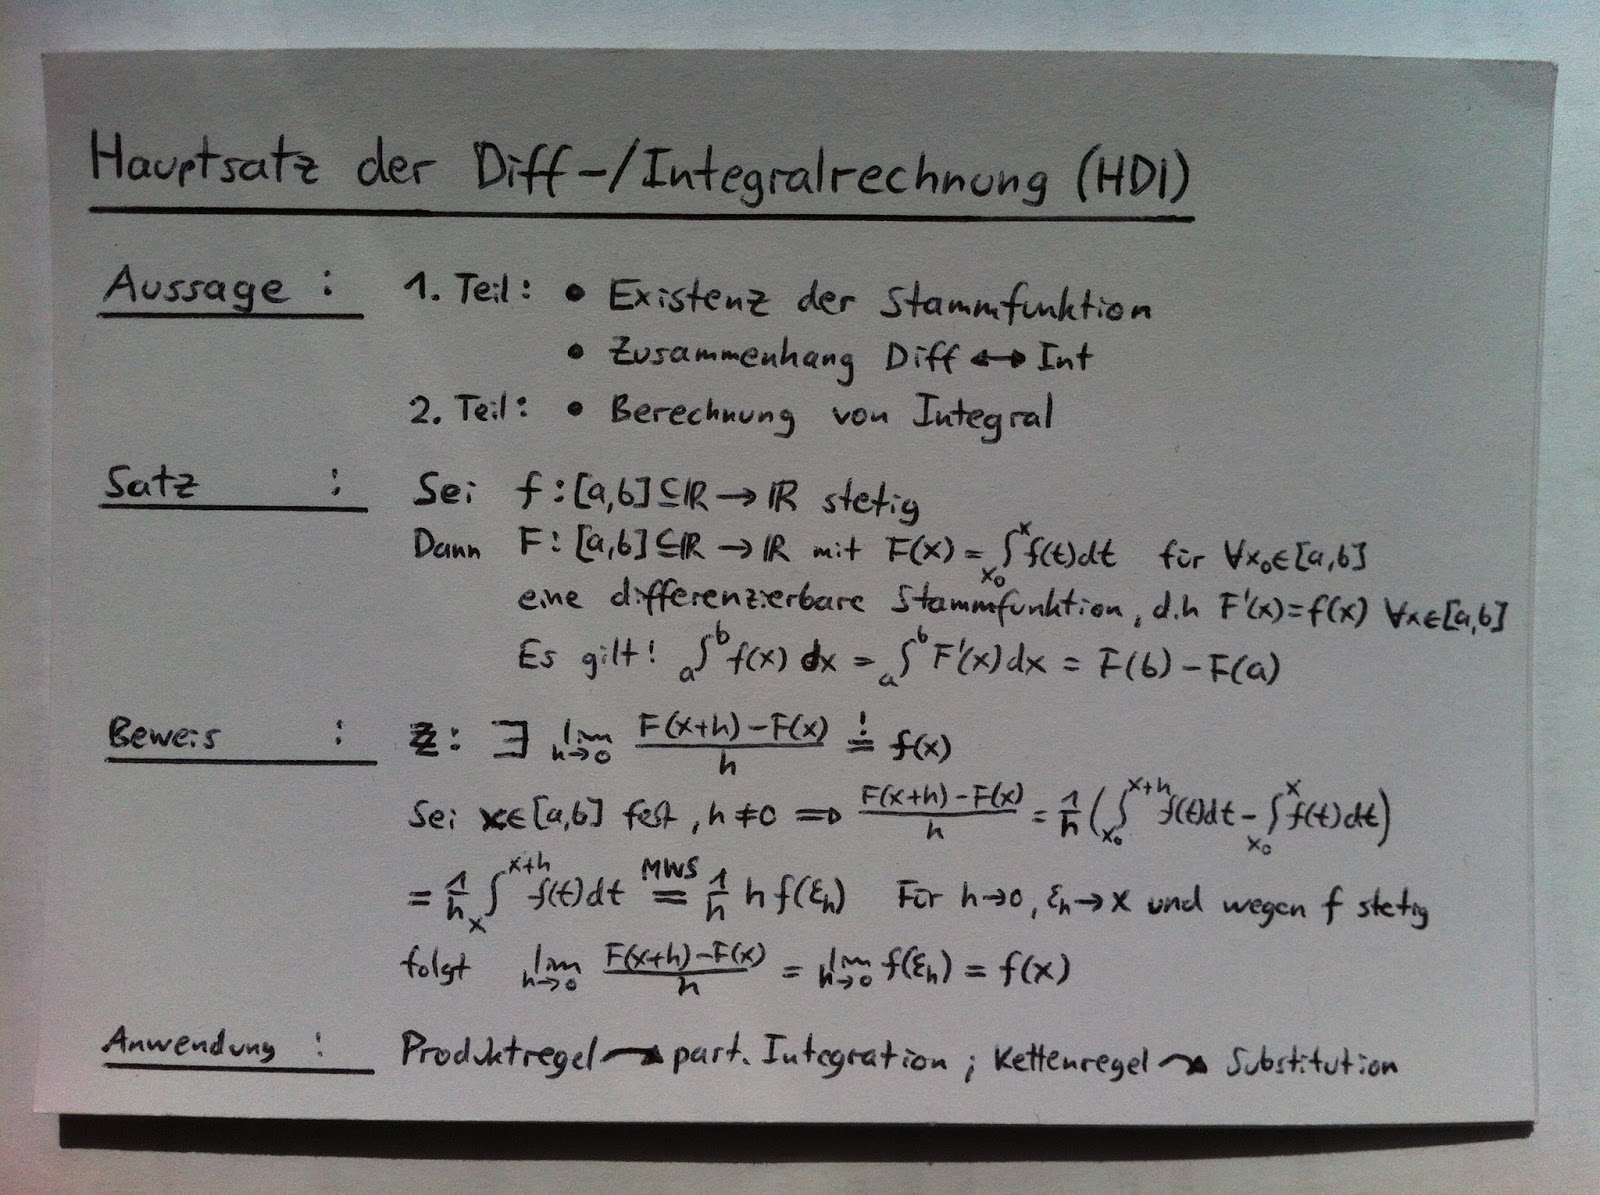 Hauptsatz der Diff-/Integralrechnung (HDI)
Aussage : 1. Teil: • Existenz der Stammfunktion
• Zusammenhang Diff ↔ Int
2. Teil: • Berechnung von Integral
Satz : Sei f : [a,b] ⊆ ℝ → ℝ stetig
Dann F : [a,b] ⊆ ℝ → ℝ mit F(x) = ∫_{x₀}^{x} f(t)dt für ∀x₀∈[a,b]
eine differenzierbare Stammfunktion, d.h F'(x)=f(x) ∀x∈[a,b]
Es gilt! ∫_a^b f(x) dx = ∫_a^b F'(x)dx = F(b) - F(a)
Beweis : Z: ∃ lim_{h→0} (F(x+h)-F(x))/h =! f(x)
Sei x∈[a,b] fest, h≠0 ⇒ (F(x+h)-F(x))/h = 1/h (∫_{x₀}^{x+h} f(t)dt - ∫_{x₀}^{x} f(t)dt)
= 1/h ∫_x^{x+h} f(t)dt =^{MWS} 1/h h f(ξ_h) Für h→0, ξ_h→x und wegen f stetig
folgt lim_{h→0} (F(x+h)-F(x))/h = lim_{h→0} f(ξ_h) = f(x)
Anwendung : Produktregel ⇝ part. Integration ; Kettenregel ⇝ Substitution